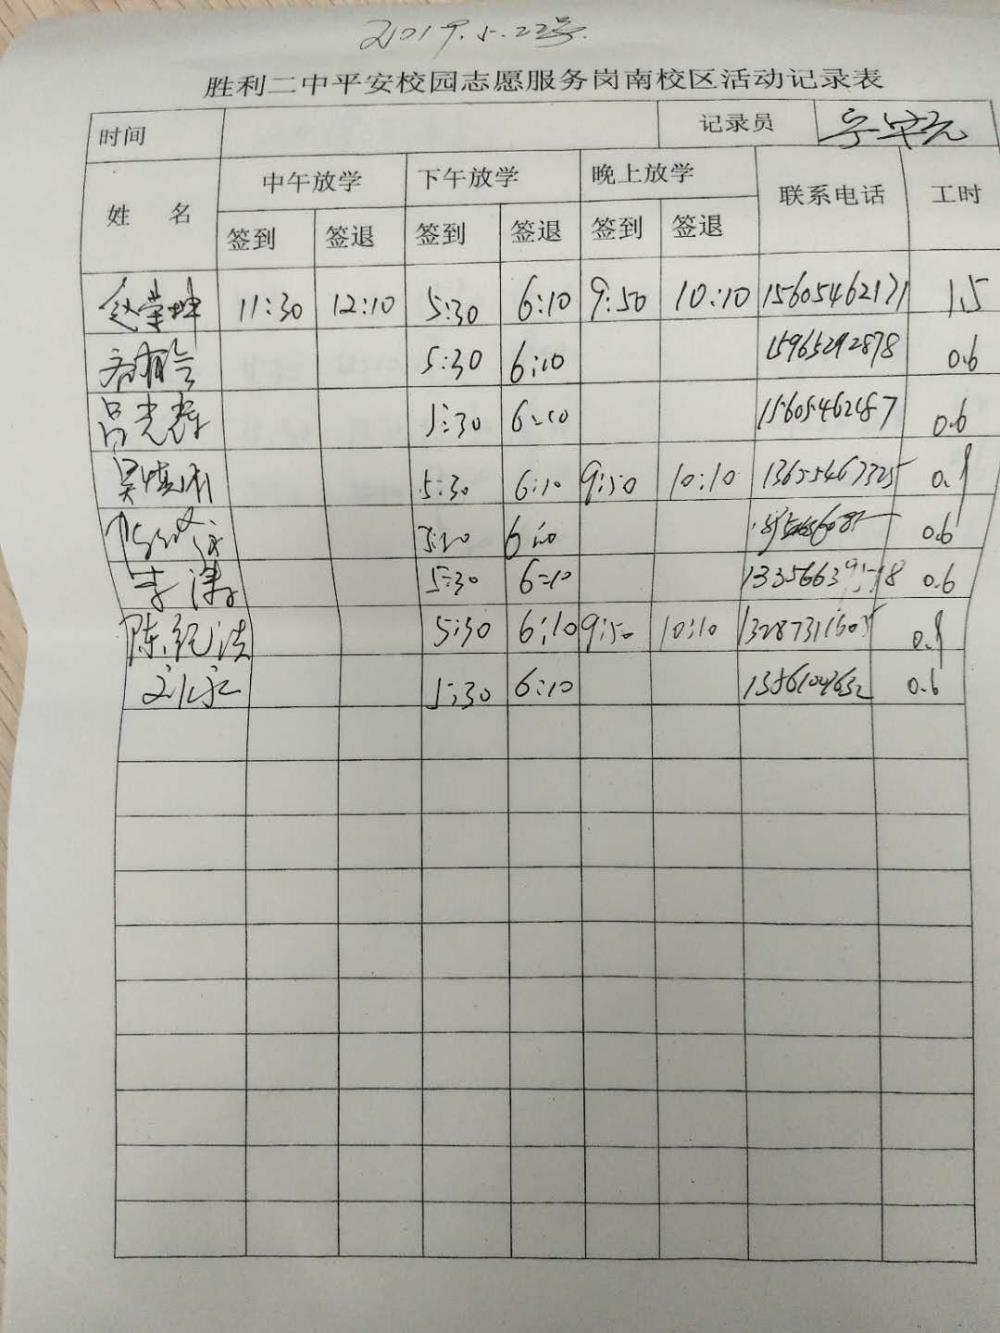 2019.5.22号.
胜利二中平安校园志愿服务岗南校区活动记录表
时间 记录员
姓 名 中午放学 下午放学 晚上放学 联系电话 工时
签到 签退 签到 签退 签到 签退
赵荣坤 11:30 12:10 5:30 6:10 9:50 10:10 15605462171 1.5
5:30 6:10 15965292878 0.6
吕光辉 5:30 6:10 15605462487 0.6
5:30 6:10 9:50 10:10 13655467325 0.9
6:10 0.6
李涛 5:30 6:10 0.6
陈纪洪 5:30 6:10 9:50 10:10 13287311605 0.9
5:30 6:10 0.6